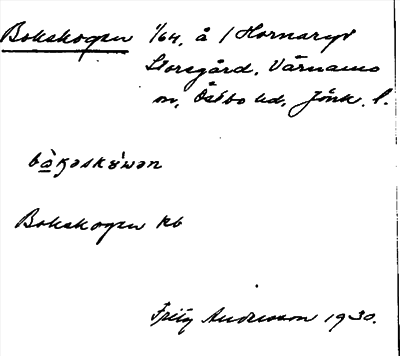 Bokskogen 1/64, å 1 Hornaryd
Storegård, Värnamo
sn, Östbo hd, Jönk. l.
Bokskogen kb
Fritz Andersson 1930.